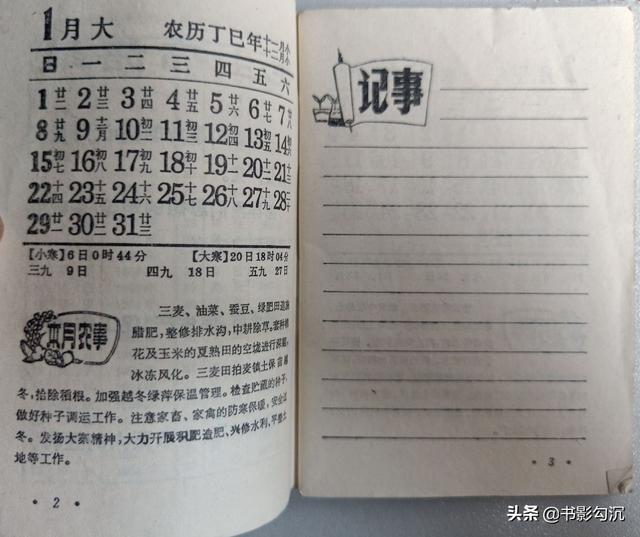 1月大 农历丁巳年 十一月小 十二月小
日 一 二 三 四 五 六
1廿二 2廿三 3廿四 4廿五 5廿六 6廿七 7廿八
8廿九 9十二月 10初二 11初三 12初四 13初五 14初六
15初七 16初八 17初九 18初十 19十一 20十二 21十三
22十四 23十五 24十六 25十七 26十八 27十九 28二十
29廿一 30廿二 31廿三
【小寒】6日0时44分 【大寒】20日18时04分
三九 9日 四九 18日 五九 27日
本月农事
三麦、油菜、蚕豆、绿肥田追施
腊肥，整修排水沟，中耕除草。套种棉
花及玉米的夏熟田的空垅进行深翻，
冰冻风化。三麦田拍麦镇土保苗越
冬，拾除稻根。加强越冬绿萍保温管理。检查贮藏的种子，
做好种子调运工作。注意家畜、家禽的防寒保暖，安全过
冬。发扬大寨精神，大力开展积肥造肥、兴修水利、平整土
地等工作。
• 2 •
记事
• 3 •
头条 @书影勾沉